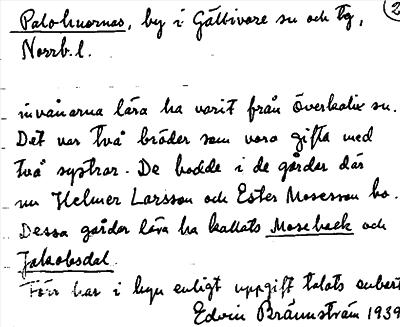 Palohuornas, by i Gällivare sn och tg,
Norrb. l.
invånarna lära ha varit från Överkalix sn.
Det var två bröder som voro gifta med
två systrar. De bodde i de gårdar där
nu Helmer Larsson och Ester Mosesson bo.
Dessa gårdar lära ha kallats Moseback och
Jakobsdal.
Förr har i byn enligt uppgift talats enbart
Edvin Brännström 1939